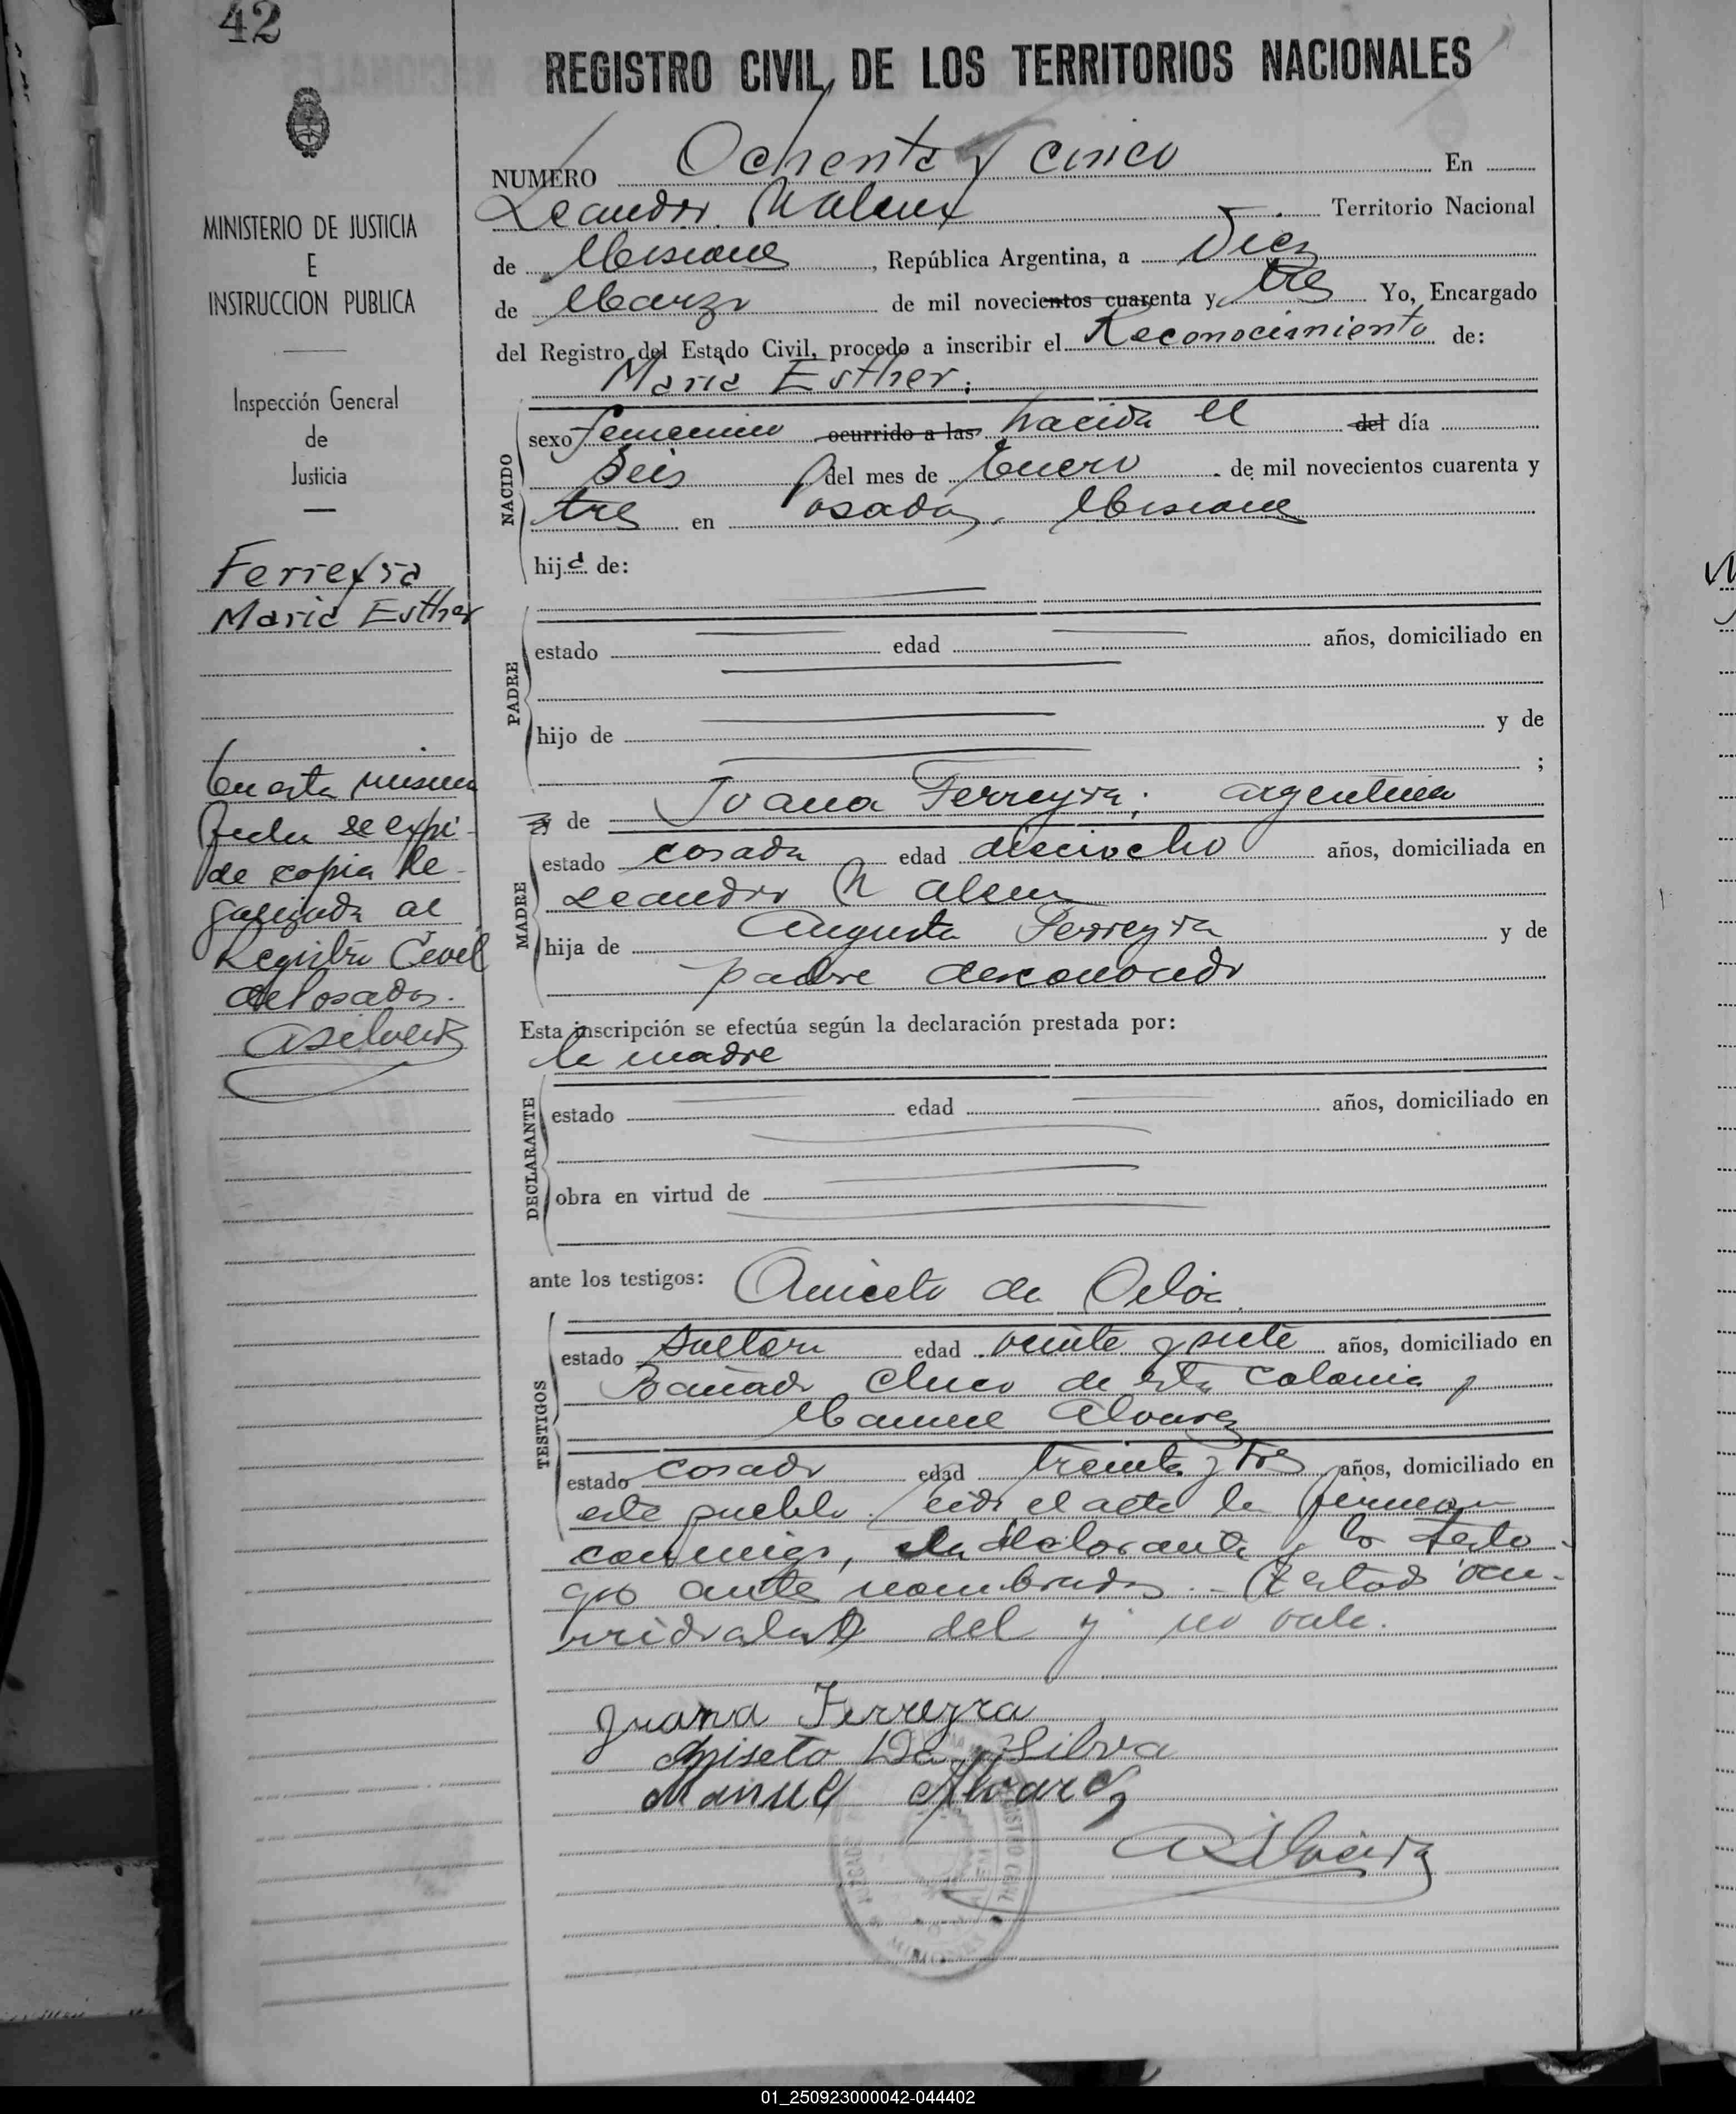 42
REGISTRO CIVIL DE LOS TERRITORIOS NACIONALES
MINISTERIO DE JUSTICIA
E
INSTRUCCION PUBLICA
Inspección General
de
Justicia
Ferreyra
Maria Esther
En esta misma
fecha se expi-
de copia le-
galizada al
Registro Civil
de Posadas.
NUMERO Ochenta y cinco En
Leandro N Alem Territorio Nacional
de Misiones, República Argentina, a Diez
de Marzo de mil novecientos cuarenta y tres Yo, Encargado
del Registro del Estado Civil, procedo a inscribir el Reconocimiento de:
Maria Esther;
NACIDO
sexo femenino ocurrido a las nacida el del día
Seis del mes de Enero de mil novecientos cuarenta y
tres en Posadas, Misiones
hija de:
PADRE
estado edad años, domiciliado en
hijo de y de
;
y de Juana Ferreyra; argentina
MADRE
estado casada edad dieciocho años, domiciliada en
Leandro N Alem
hija de Augusta Ferreyra y de
padre desconocido
Esta inscripción se efectúa según la declaración prestada por:
la madre
DECLARANTE
estado edad años, domiciliado en
obra en virtud de
ante los testigos: Aniceto da Silva
TESTIGOS
estado soltero edad veinte y siete años, domiciliado en
Bañado Chico de esta Colonia y
Manuel Alvarez
estado casado edad treinta y tres años, domiciliado en
este pueblo. Leida el acta la firman
conmigo, la declarante y los testi-
gos antes nombrados.- Testado: ocu-
rrido a las del y no vale.
Juana Ferreyra
Aniseto Da Silva
Manuel Alvarez
01_250923000042-044402